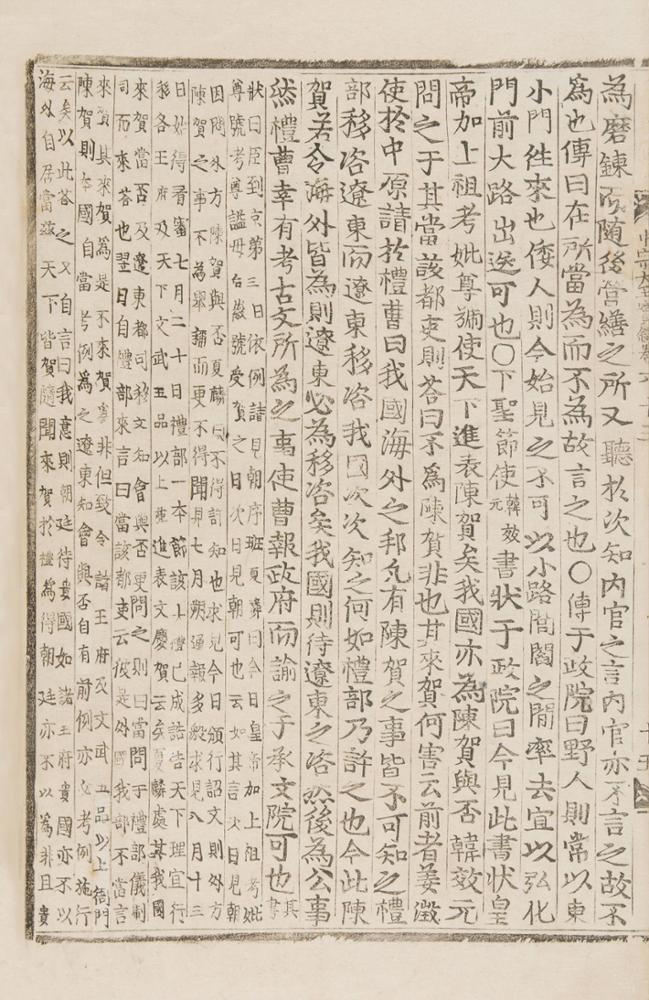 為磨鍊而隨後營繕之所又聽於次知內官之言內官亦不言之故不
爲也傳曰在所當為而不為故言之也○傳于政院曰野人則常以東
小門徃來也倭人則今始見之不可以小路閭閻之間率去宜以弘化
門前大路出送可也○下聖節使韓效元書狀于政院曰今見此書狀皇
帝加上祖考妣尊號使天下進表陳賀矣我國亦為陳賀與否韓效元
問之于其當該都吏則答曰不爲陳賀非也其來賀何害云前者姜澂
使於中原請於禮曹曰我國海外之邦凡有陳賀之事皆不可知之禮
部移咨遼東而遼東移咨我國次次知之何如禮部乃許之也今此陳
賀若令海外皆為則遼東必為移咨矣我國則待遼東之咨然後為公事
然禮曹幸有考古文所為之事使曹報政府而諭之于承文院可也其書
狀曰臣到京第三日依例請見朝序班夏麟曰今日皇帝加上祖考妣
尊號考尊謚母后徽號受賀之日次日見朝可也云如其言次日見朝
因問外方陳賀與否夏麟曰不得詳知也求見今日頒行詔文則外方
陳賀之事不為擧論而更不得聞見七月朔通報多般求見八月十三
日始得看審七月二十日禮部一本節該上禮已成誥告天下理宜行
移各王府及天下文武五品以上進表文慶賀云矣夏麟處其我國
來賀當否及遼東都司移文知會與否更問之則曰當問于禮部儀制
司而來答也翌日自禮部來言曰當該都吏云彼是外國我部不當言
來賀其來賀為是不來賀非但致令諸王府及文武五品以上衙門
陳賀則本國自當考例爲之遼東知會與否自有前例亦必考例施行
云矣以此答之又自言曰我意則朝廷待貴國如諸王府貴國亦不以
海外自居當玆天下皆賀隨聞來賀於禮為得朝廷亦不以為非且貴